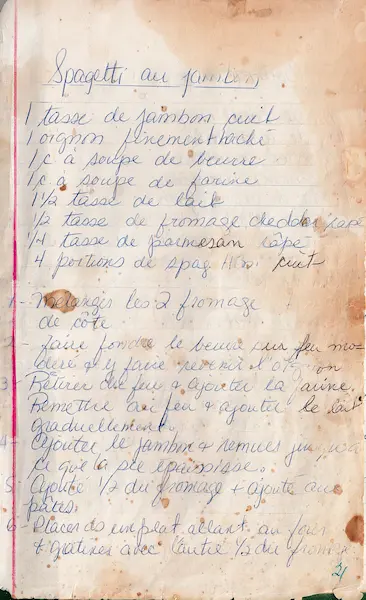 Spagetti au jambon
1 tasse de jambon cuit
1 oignon finement haché
1 c à soupe de beurre
1 c à soupe de farine
1 1/2 tasse de lait
1/2 tasse de fromage cheddar râpé
1/4 tasse de parmesan râpé
4 portions de spag cuit
1- Mélanger les 2 fromage
de côte
2- faire fondre le beurre sur feu mo-
déré & y faire revenir l'oignon
3- Retirer du feu & ajouter la farine.
Remettre au feu & ajouter le lait
graduellement.
4- Ajouter le jambon & remuer
ce que la épaississe.
5- Ajouté 1/2 du fromage + ajouté aux
pâtes.
6- Placer ds un plat allant au four
+ gratiner avec l'autre 1/2 du fromage